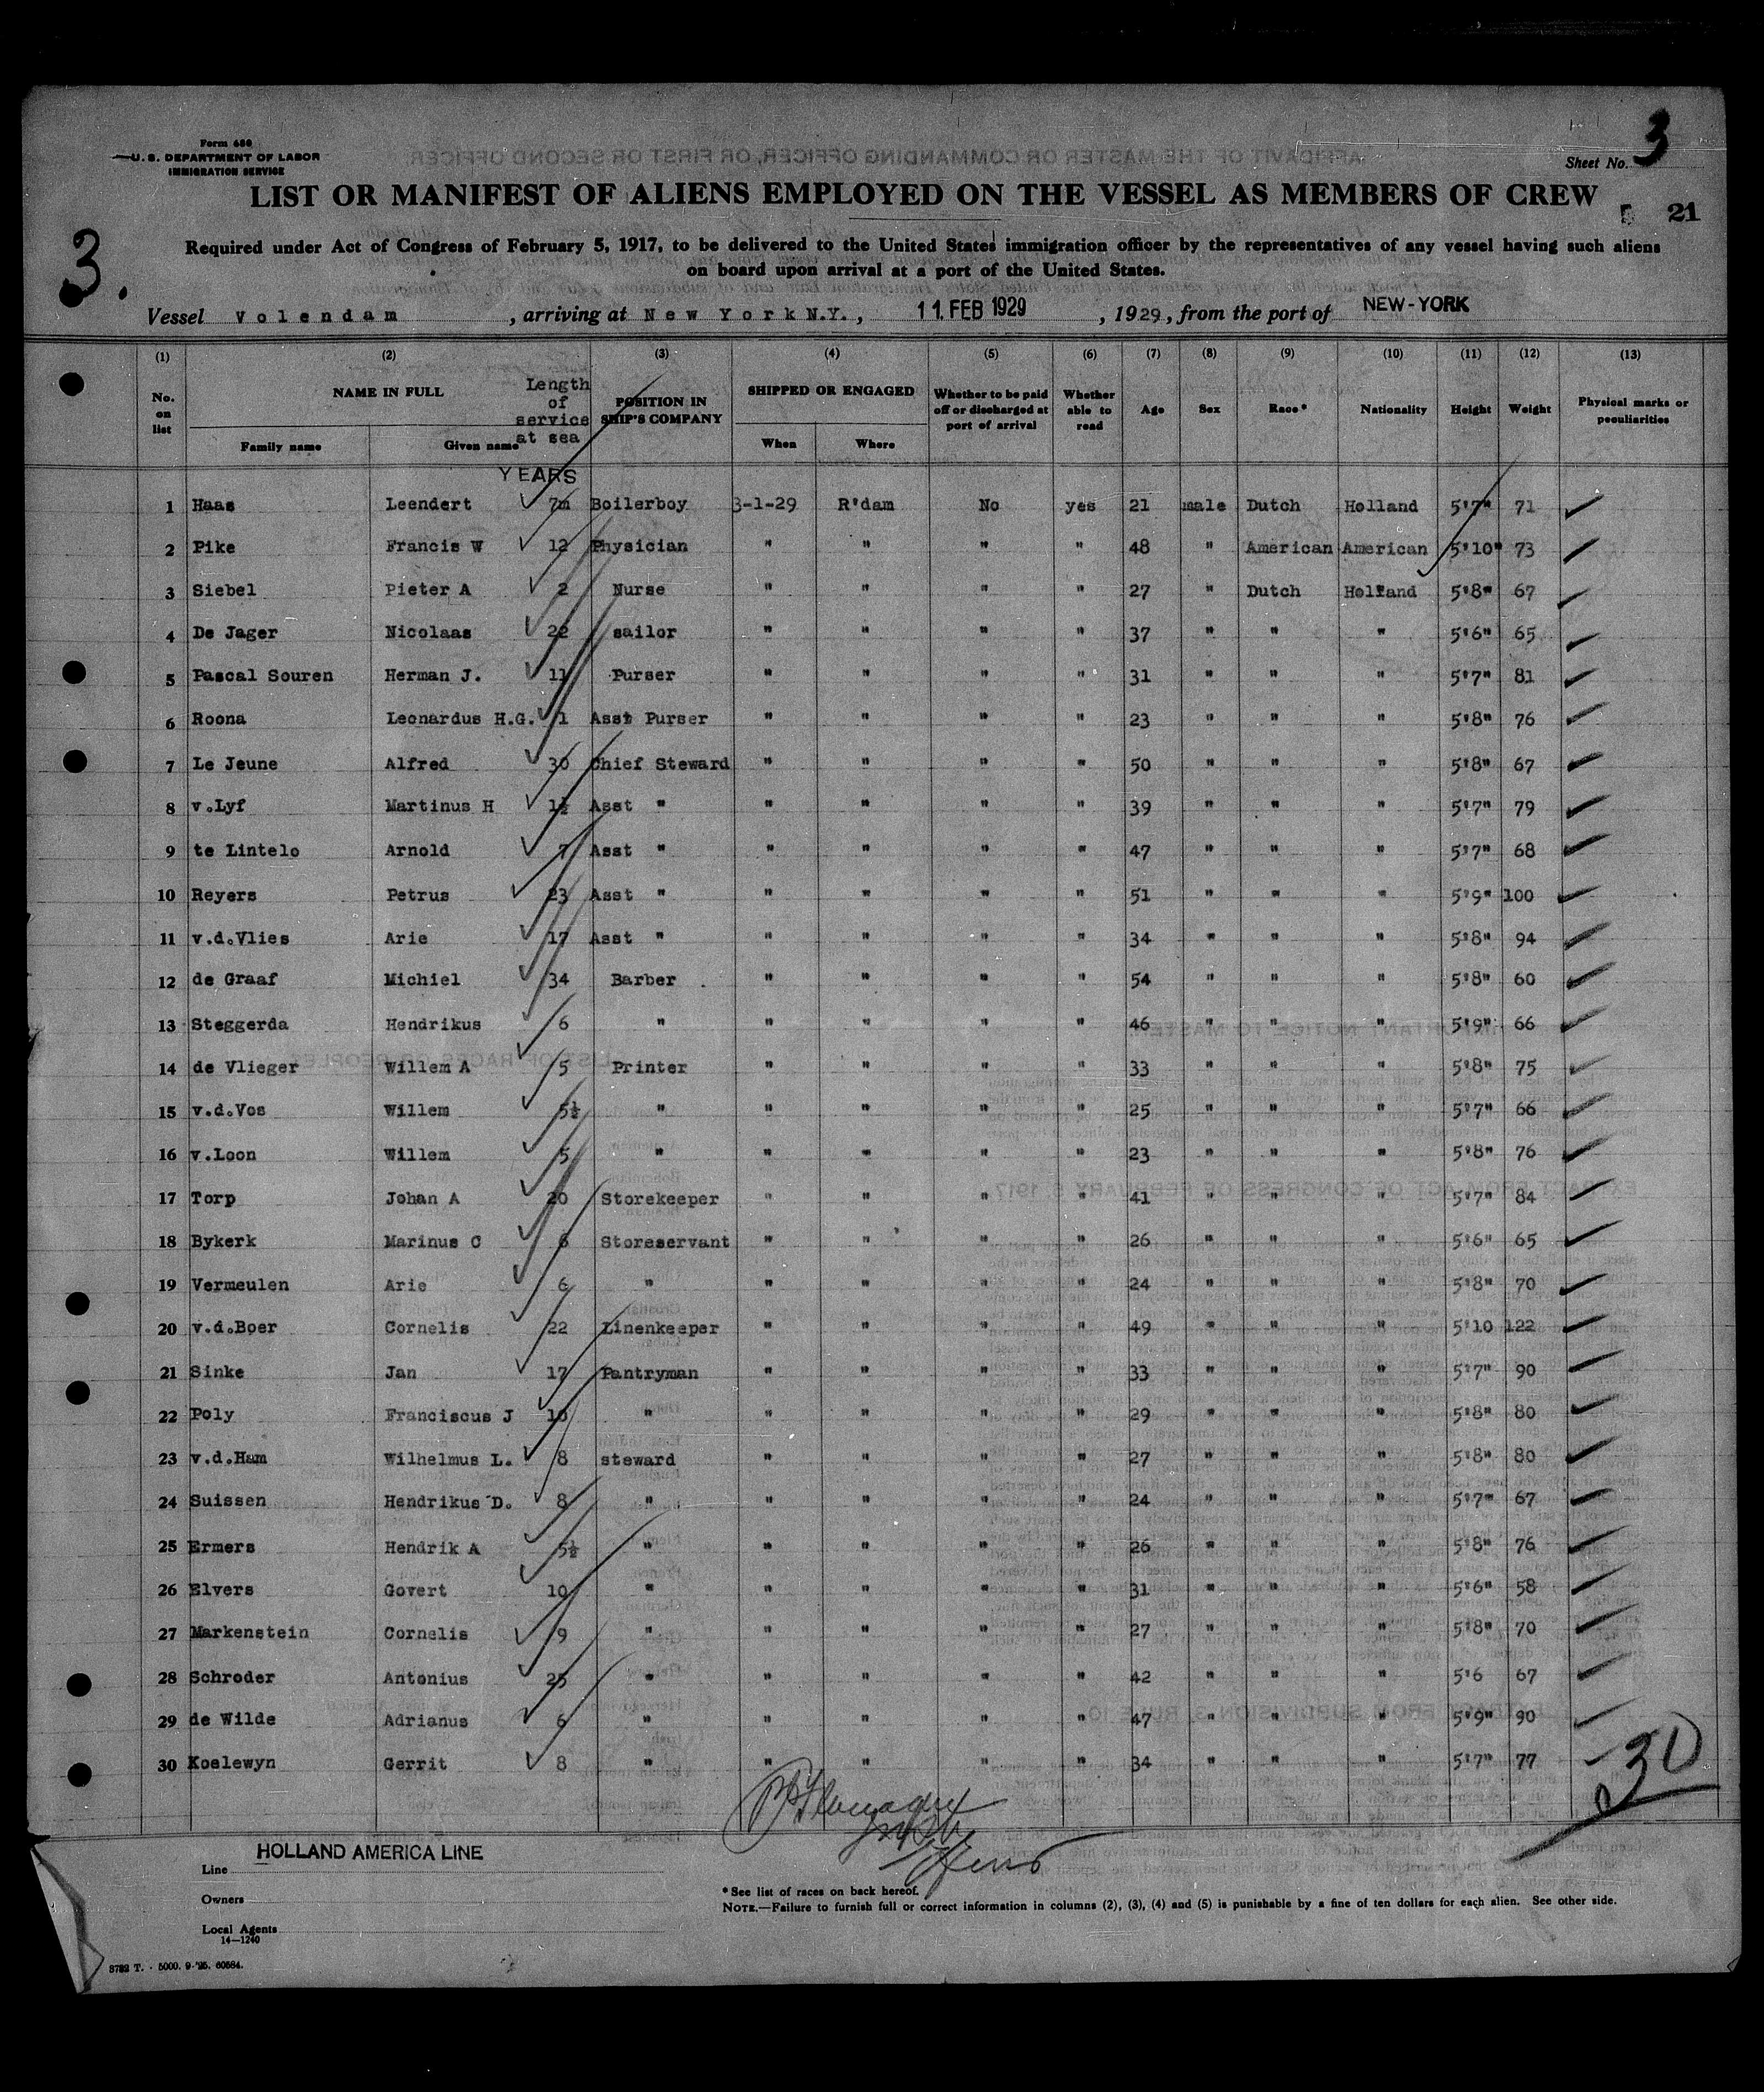 Form 680
U. S. DEPARTMENT OF LABOR
IMMIGRATION SERVICE
Sheet No. 3
LIST OR MANIFEST OF ALIENS EMPLOYED ON THE VESSEL AS MEMBERS OF CREW
21
3.
Required under Act of Congress of February 5, 1917, to be delivered to the United States immigration officer by the representatives of any vessel having such aliens
on board upon arrival at a port of the United States.
Vessel Volendam, arriving at New York N.Y., 11 FEB 1929, 1929, from the port of NEW-YORK
(1) (2) (3) (4) (5) (6) (7) (8) (9) (10) (11) (12) (13)
No. on list NAME IN FULL Family name Given name Length of service at sea YEARS POSITION IN SHIP'S COMPANY SHIPPED OR ENGAGED When Where Whether to be paid off or discharged at port of arrival Whether able to read Age Sex Race* Nationality Height Weight Physical marks or peculiarities
1 Haas Leendert 7m Boilerboy 3-1-29 R'dam No yes 21 male Dutch Holland 5'7" 71
2 Pike Francis W 12 Physician " " " " 48 " American American 5'10" 73
3 Siebel Pieter A 2 Nurse " " " " 27 " Dutch Holland 5'8" 67
4 De Jager Nicolaas 22 sailor " " " " 37 " " " 5'6" 65
5 Pascal Souren Herman J. 11 Purser " " " " 31 " " " 5'7" 81
6 Roona Leonardus H.G. 1 Asst Purser " " " " 23 " " " 5'8" 76
7 Le Jeune Alfred 30 Chief Steward " " " " 50 " " " 5'8" 67
8 v.Lyf Martinus H 1½ Asst " " " " " 39 " " " 5'7" 79
9 te Lintelo Arnold 7 Asst " " " " " 47 " " " 5'7" 68
10 Reyers Petrus 23 Asst " " " " " 51 " " " 5'9" 100
11 v.d.Vlies Arie 17 Asst " " " " " 34 " " " 5'8" 94
12 de Graaf Michiel 34 Barber " " " " 54 " " " 5'8" 60
13 Steggerda Hendrikus 6 " " " " " 46 " " " 5'9" 66
14 de Vlieger Willem A 5 Printer " " " " 33 " " " 5'8" 75
15 v.d.Vos Willem 5½ " " " " " 25 " " " 5'7" 66
16 v.Loon Willem 5 " " " " " 23 " " " 5'8" 76
17 Torp Johan A 20 Storekeeper " " " " 41 " " " 5'7" 84
18 Bykerk Marinus C 6 Storeservant " " " " 26 " " " 5'6" 65
19 Vermeulen Arie 6 " " " " " 24 " " " 5'8" 70
20 v.d.Boer Cornelis 22 Linenkeeper " " " " 49 " " " 5'10 122
21 Sinke Jan 17 Pantryman " " " " 33 " " " 5'7" 90
22 Poly Franciscus J 10 " " " " " 29 " " " 5'8" 80
23 v.d.Ham Wilhelmus L. 8 steward " " " " 27 " " " 5'8" 80
24 Suissen Hendrikus D. 8 " " " " " 24 " " " 5'7" 67
25 Ermers Hendrik A 5½ " " " " " 26 " " " 5'8" 76
26 Elvers Govert 10 " " " " " 31 " " " 5'6" 58
27 Markenstein Cornelis 9 " " " " " 27 " " " 5'8" 70
28 Schroder Antonius 25 " " " " " 42 " " " 5'6 67
29 de Wilde Adrianus 6 " " " " " 47 " " " 5'9" 90
30 Koelewyn Gerrit 8 " " " " " 34 " " " 5'7" 77
30
Line HOLLAND AMERICA LINE
Owners
Local Agents
14—1240
* See list of races on back hereof.
NOTE.—Failure to furnish full or correct information in columns (2), (3), (4) and (5) is punishable by a fine of ten dollars for each alien. See other side.
3782 T. - 5000. 9-'25. 60584.